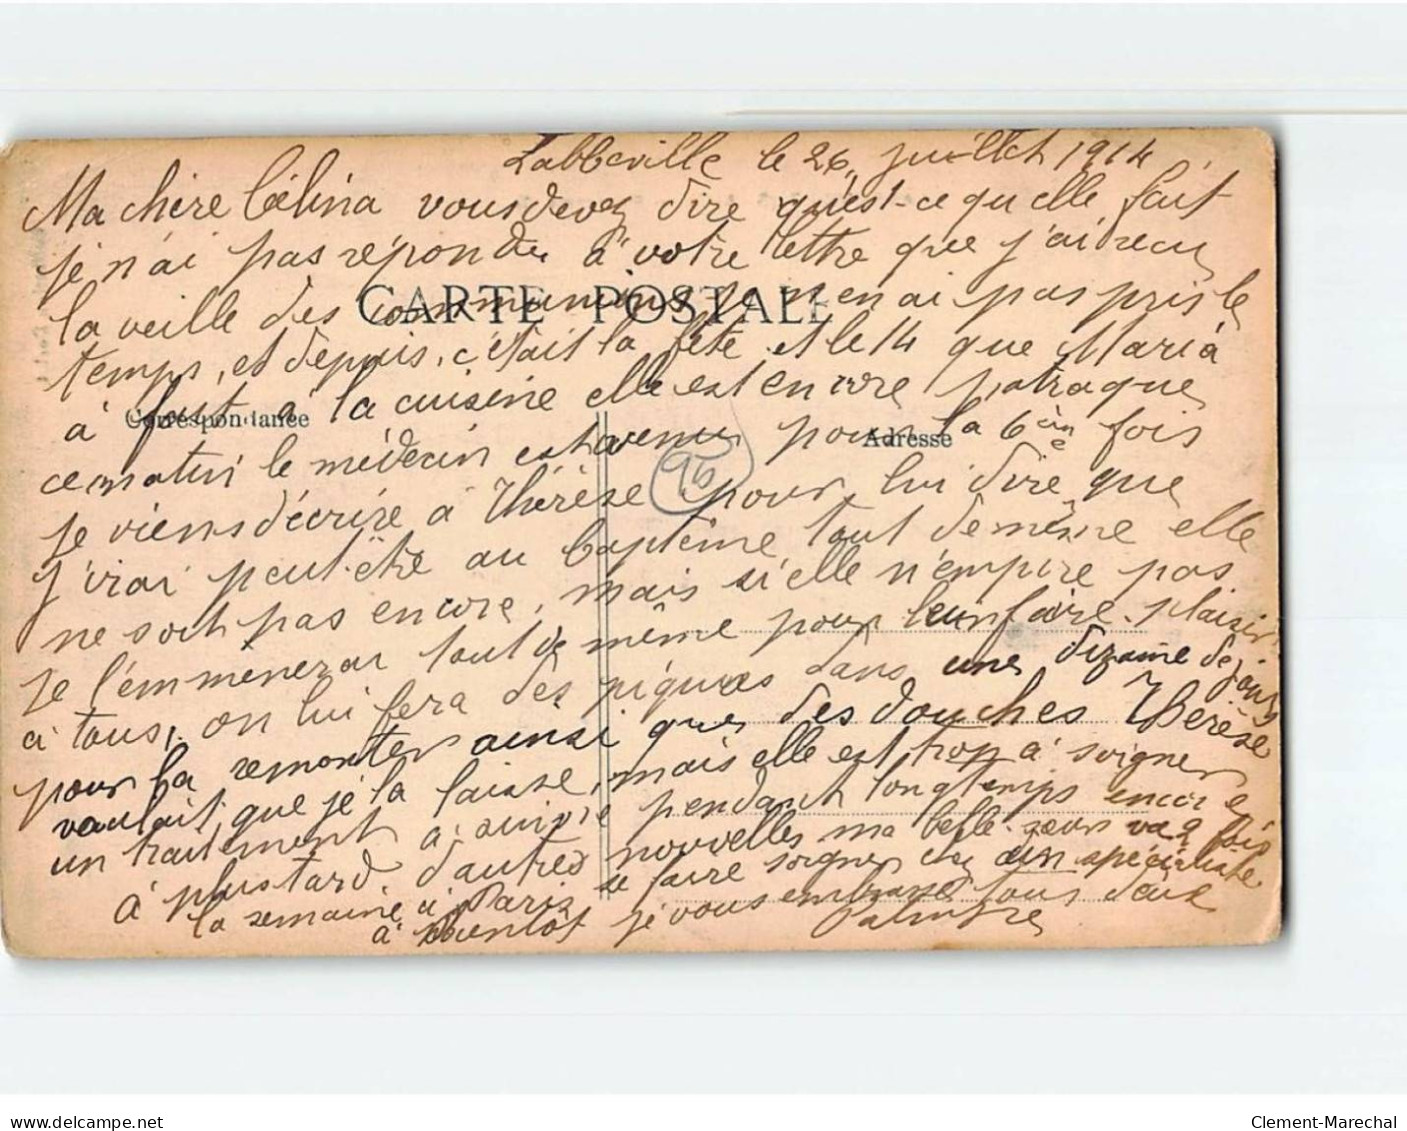 Labbeville le 26 juillet 1914
Ma chère Célina vous devez dire qu'est-ce qu'elle fait
je n'ai pas répondu à votre lettre que j'ai recu
la veille des communions je n'en ai pas pris le
CARTE POSTALE
temps, et depuis, c'était la fête et le 14 que Maria
à fait à la cuisine elle est encore patraque
Correspondance
Adresse
ce matin le médecin est venu pour la 6ème fois
96
je viens d'écrire à Thérèse pour lui dire que
j'irai peut-être au baptême tout de même elle
ne sort pas encore, mais si elle n'empire pas
je l'emmènerai tout de même pour leur faire plaisir
à tous, on lui fera des piqures dans une dizaine de jours
pour la remonter ainsi que des douches Thérèse
voulait que je la laisse, mais elle est trop à soigner
un traitement à suivre pendant longtemps encore
à plus tard d'autres nouvelles ma belle-sœur va 2 fois
la semaine à Paris se faire soigner chez un spécialiste
à bientôt je vous embrasse tous deux
Palmyre
delcampe.net
Clement-Marechal